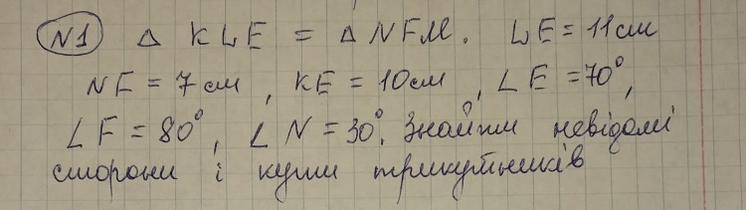 N1 Δ KLE = Δ NFM. LE = 11см
NF = 7см, KE = 10см, ∠E = 70°,
∠F = 80°, ∠N = 30°. Знайти невідомі
сторони і кути трикутників